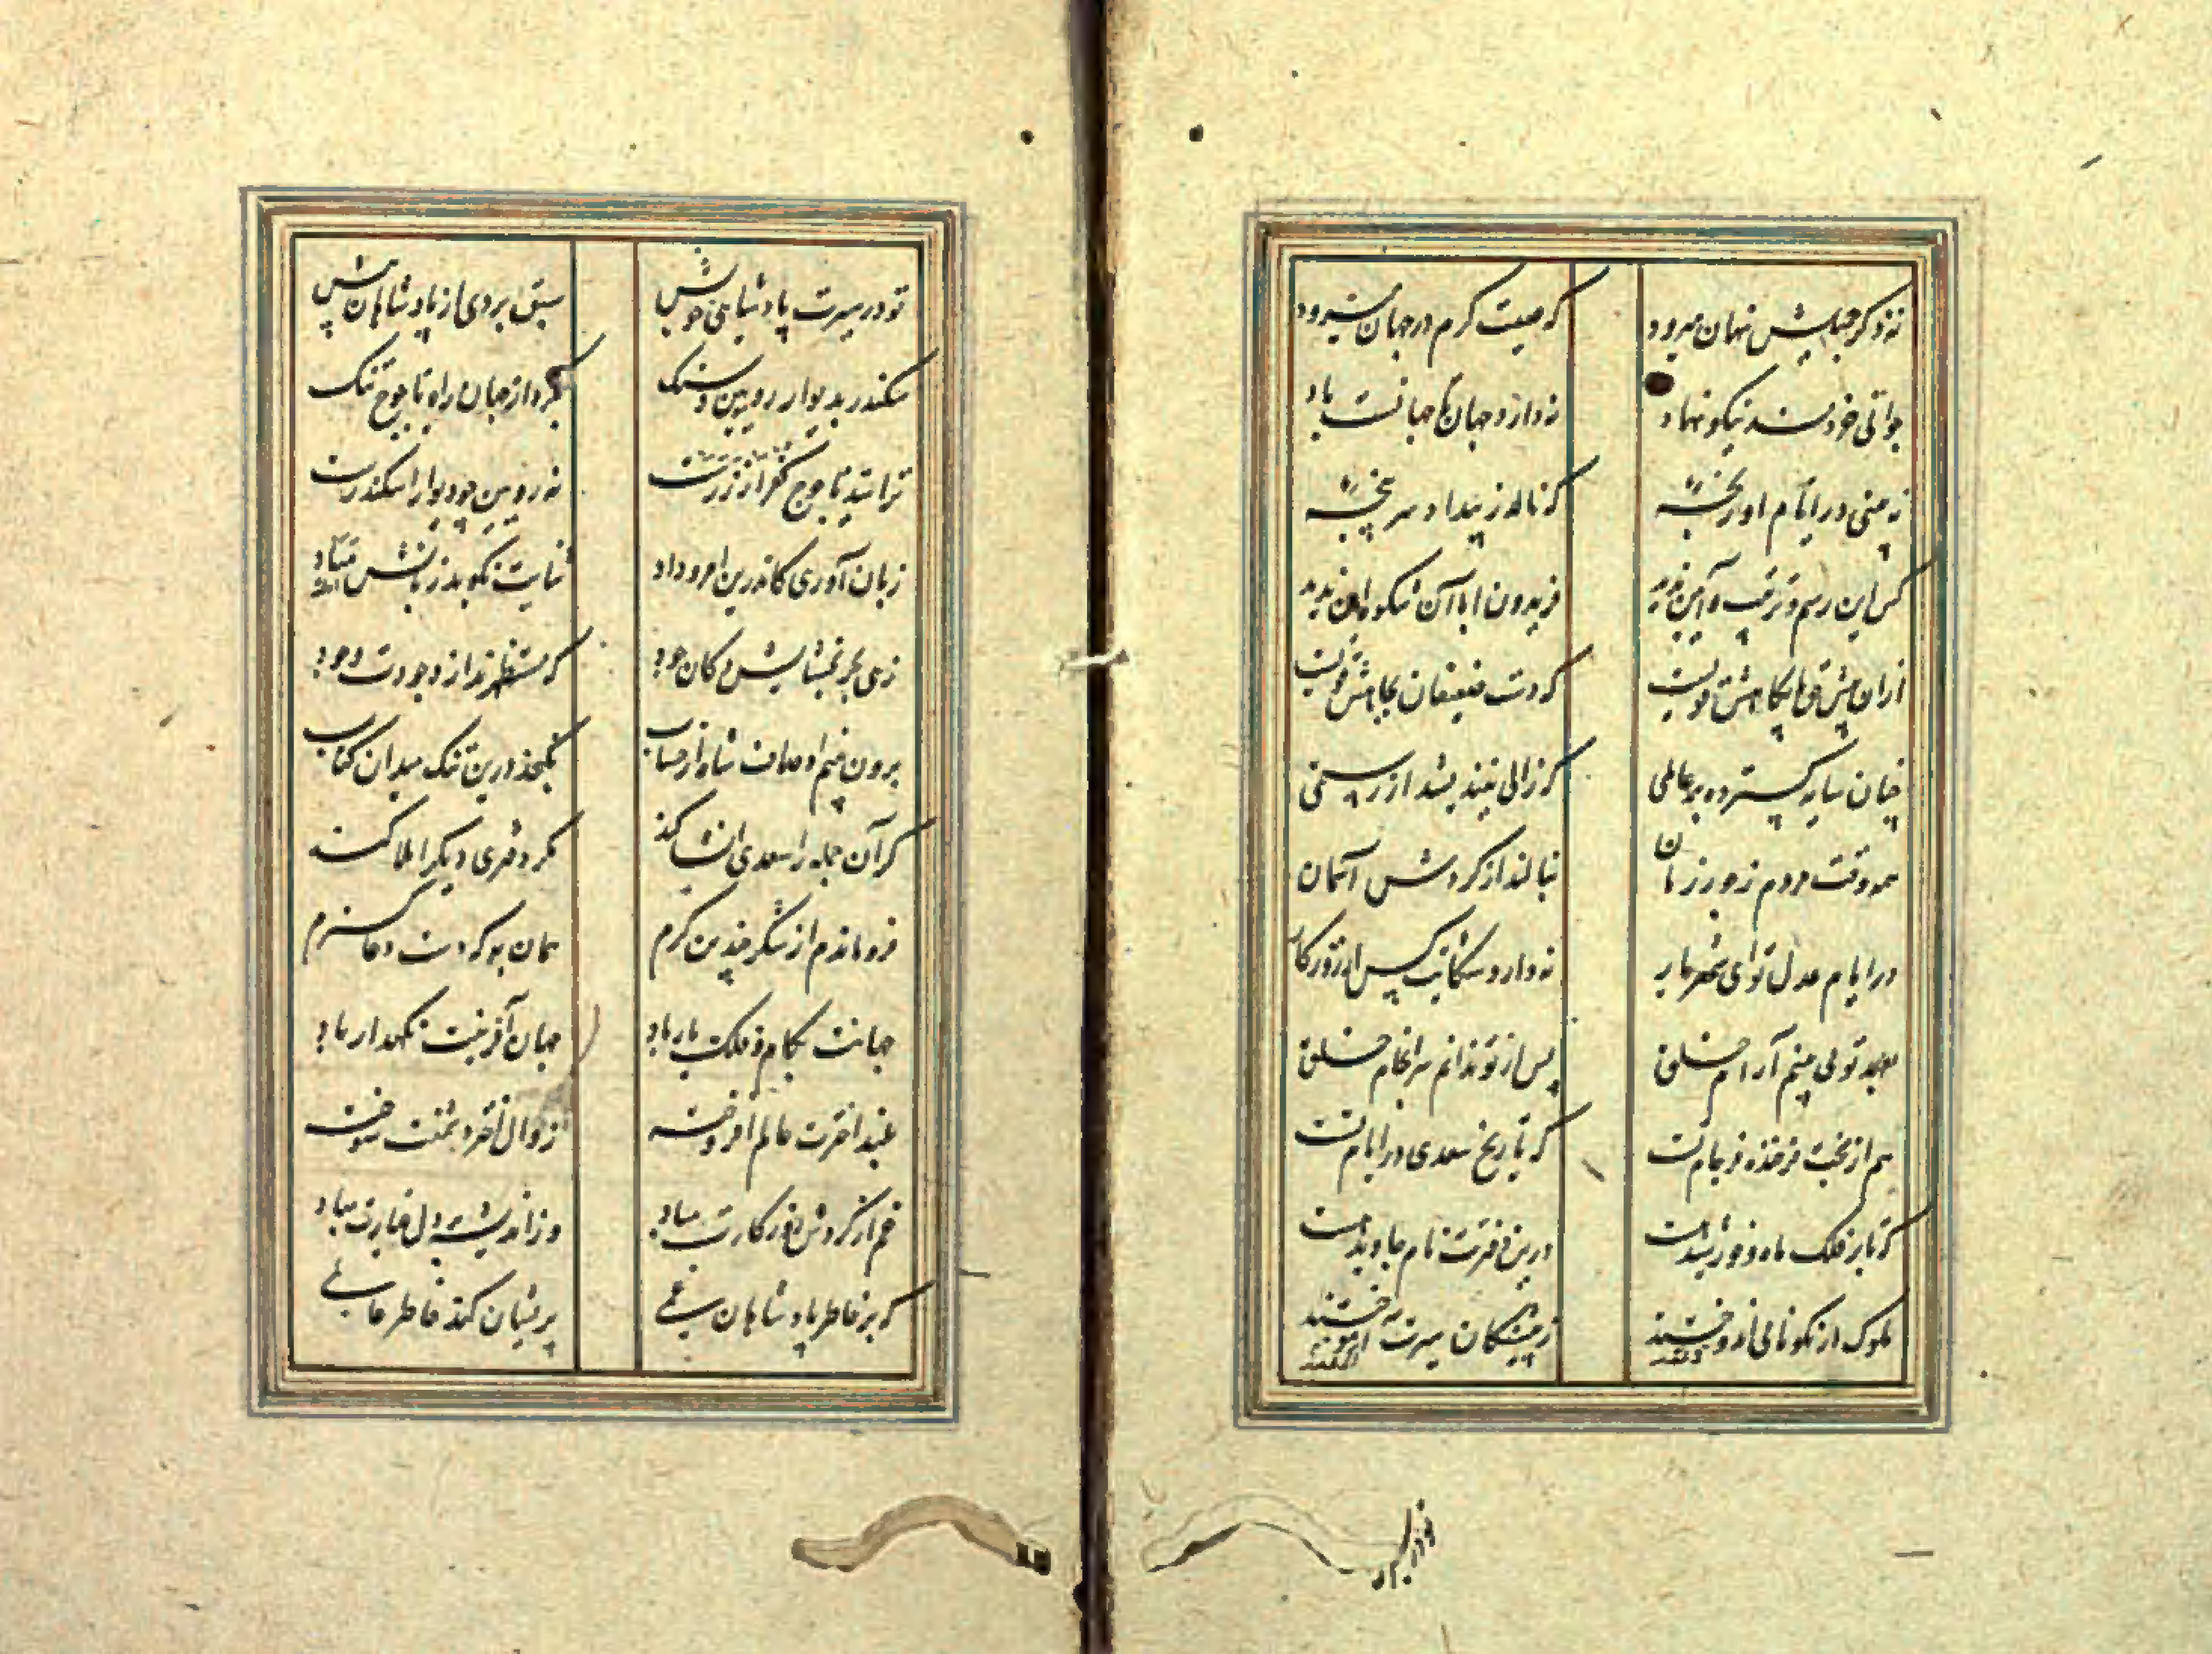 نه ذکر جمیلش نهان میرود که صیت کرم در جهان میرود
جوانی خردمند نیکو نهاد ندارد جهان تا جهانست یاد
نه بینی در ایام او رنجهٔ که نالد ز بیداد سر پنجهٔ
کس این رسم و ترتیب و آیین ندید فریدون ابا آن شکوه این ندید
ازان پیش حق پایگاهش قویست که دست ضعیفان بجاهش قویست
چنان سایه گسترده بر عالمی که زالی نیندیشد از رستمی
همه وقت مردم ز جور زمان بنالند از گردش آسمان
در ایام عدل تو ای شهریار ندارد شکایت کس از روزگار
بعهد تو می بینم آرام خلق پس از تو ندانم سرانجام خلق
هم از بخت فرخنده فرجام تست که تاریخ سعدی در ایام تست
که تا بر فلک ماه و خورشید هست درین دفترت نام جاوید هست
ملوک ار نکو نامی اندوختند ز پیشینگان سیرت آموختند
تو در سیرت پادشاهی خویش سبق بردی از پادشاهان پیش
سکندر بدیوار رویین و سنک بکرد از جهان راه یاجوج تنک
ترا سد یاجوج کفر از زرست نه رویین چو دیوار اسکندرست
زبان آوری کاندرین امر و داد ثنایت نگوید زبانش مباد
زهی بحر بخشایش و کان جود که مستظهرند از وجودت وجود
برون بینم اوصاف شاه از حساب نگنجد درین تنک میدان کتاب
گر آن جمله را سعدی انشا کند مگر دفتری دیگر املا کند
فرو ماندم از شکر چندین کرم همان به که دست دعا گسترم
جهانت بکام و فلک یار باد جهان آفرینت نگهدار باد
بلند اخترت عالم افروخته زوال اختر دشمنت سوخته
غم از گردش روزگارت مباد وز اندیشه بر دل غبارت مباد
که بر خاطر پادشاهان غمی پریشان کند خاطر عالمی